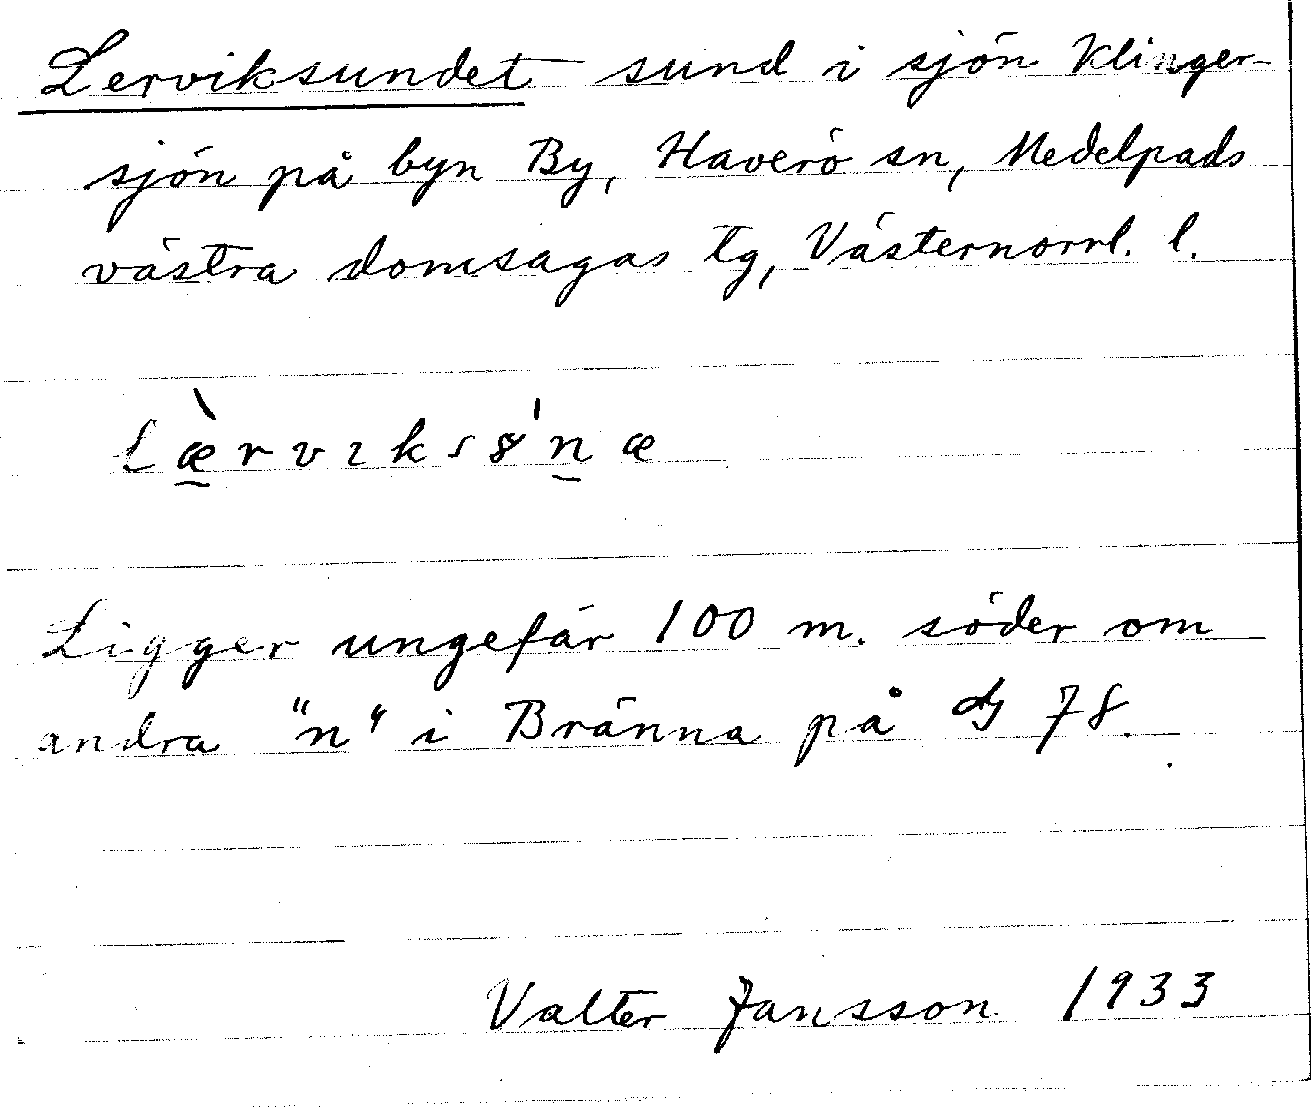 Lerviksundet sund i sjön Klinger-
sjön på byn By, Haverö sn, Medelpads
västra domsagas tg, Västernorrl. l.
Læ̀rvıks8'næ
Ligger ungefär 100 m. söder om
andra "n" i Bränna på 78.
Valter Jansson 1933